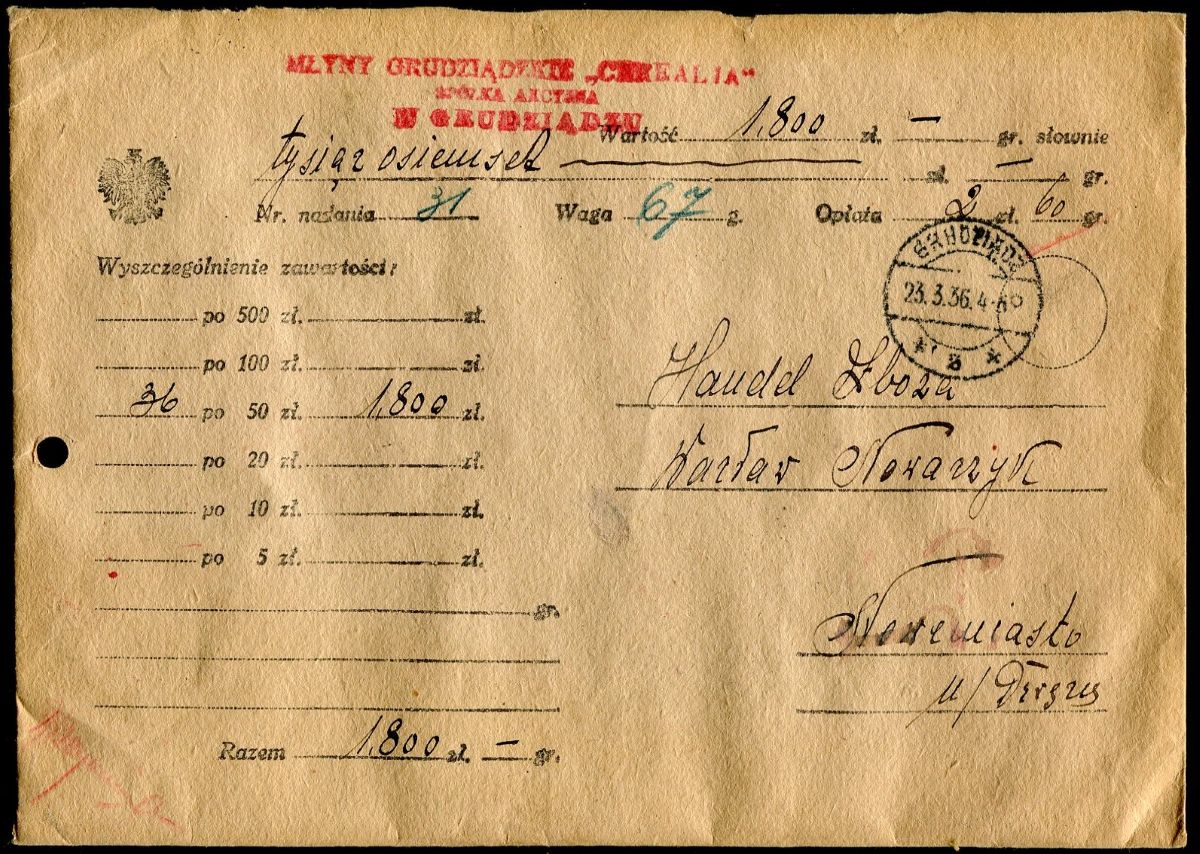 MŁYNY GRUDZIĄDZKIE „CEREALIA“
SPÓŁKA AKCYJNA
W GRUDZIĄDZU
Wartość 1.800 zł. — gr. słownie
tysiąc osiemset — zł. — gr.
Nr. nadania 31 Waga 67 g. Opłata 2 zł. 60 gr.
GRUDZIĄDZ
23.3.36.4
Wyszczególnienie zawartości:
po 500 zł. zł.
po 100 zł. zł.
36 po 50 zł. 1.800 zł.
po 20 zł. zł.
po 10 zł. zł.
po 5 zł. zł.
gr.
Razem 1.800 zł. — gr.
Handel Zboża
Wacław Nowaczyk
Nowemiasto
n/Drwęcą